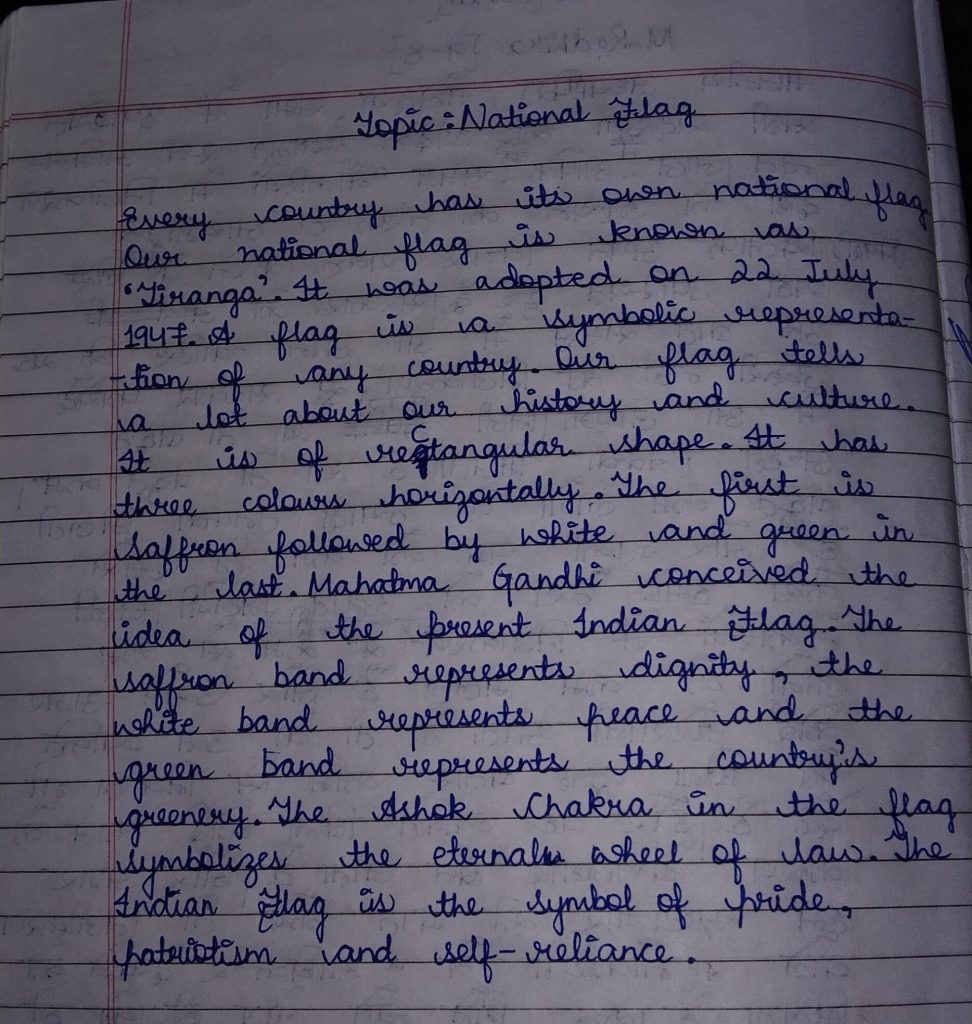 Topic: National Flag
Every country has its own national flag
Our national flag is known as
'Tiranga'. It was adopted on 22 July
1947. A flag is a symbolic representa-
-tion of any country. Our flag tells
a lot about our history and culture.
It is of rectangular shape. It has
three colours horizontally. The first is
saffron followed by white and green in
the last. Mahatma Gandhi conceived the
idea of the present Indian Flag. The
saffron band represents dignity, the
white band represents peace and the
green band represents the country's
greenery. The Ashok Chakra in the flag
symbolizes the eternal wheel of law. The
Indian Flag is the symbol of pride,
patriotism and self-reliance.